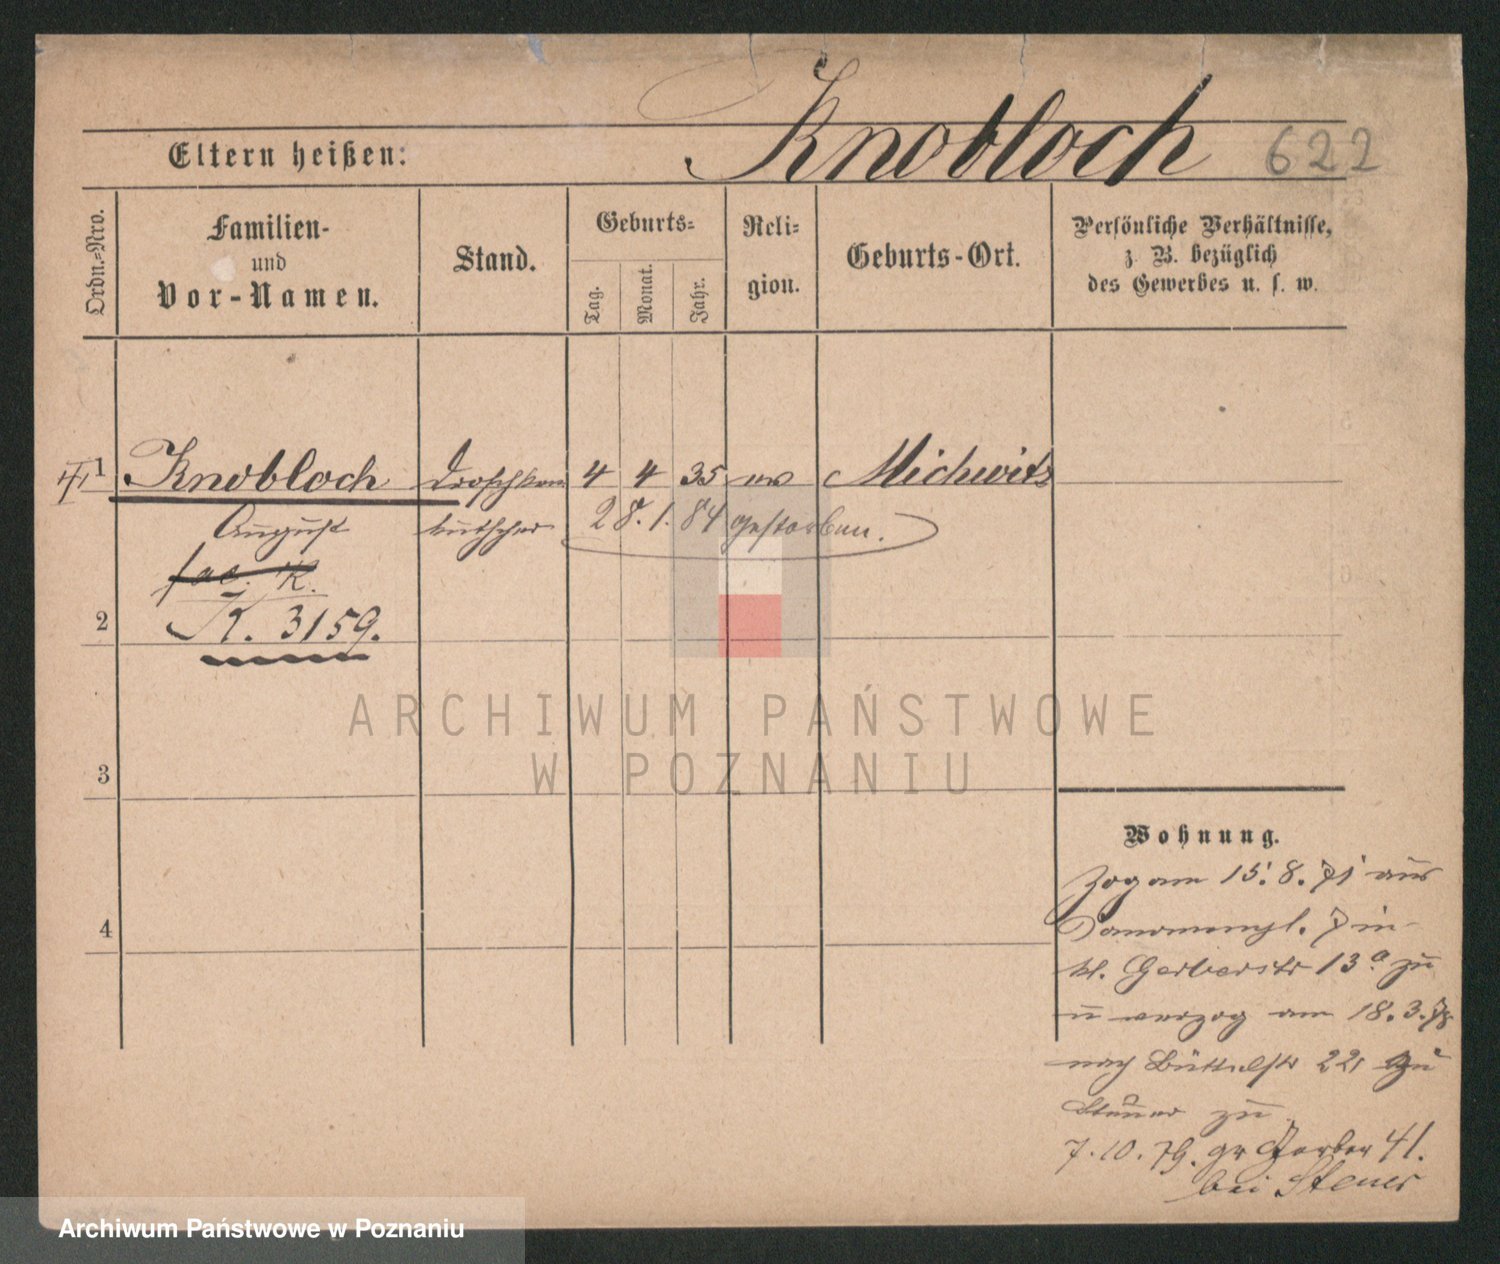 Knobloch 622
Eltern heißen:
Ordn.=Nro.
Familien-
und
Vor-Namen.
Stand.
Geburts=
Tag.
Monat.
Jahr.
Reli-
gion.
Geburts-Ort.
Persönliche Verhältnisse,
z. B. bezüglich
des Gewerbes u. s. w.
1 Knobloch Droschken 4 4 35 ev Michwitz
August kutscher 28. 1. 84 gestorben.
fac. K.
K. 3159.
2
3
4
Wohnung.
Zog am 15. 8. 71 aus
7 in
kl. Gerberstr 13a zu
u verzog am 18. 3. 78
nach Büttelstr 22 zu
Steuer zu
7. 10. 79. gr Gerber 41.
bei Steuer
ARCHIWUM PAŃSTWOWE
W POZNANIU
Archiwum Państwowe w Poznaniu